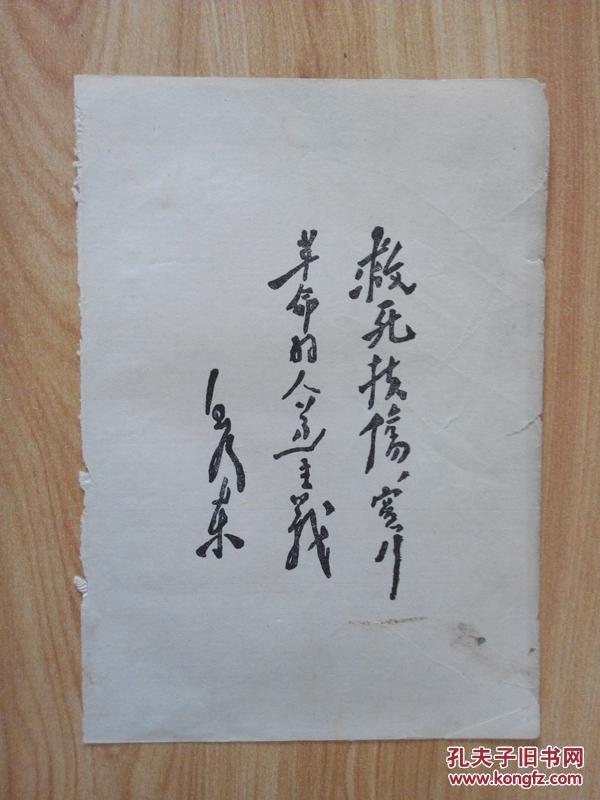 救死扶傷、實行
革命的人道主義
毛澤東
孔夫子旧书网
www.kongfz.com